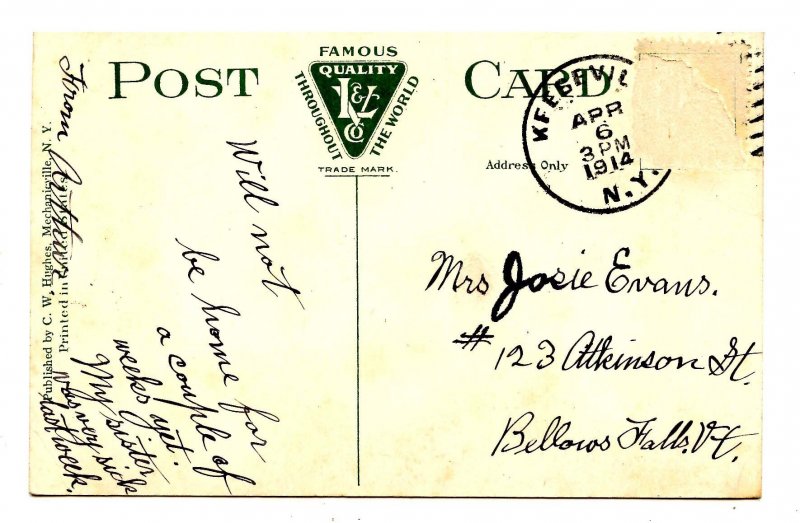 FAMOUS
QUALITY
THROUGHOUT
THE WORLD
K & L
CO
TRADE MARK.
POST CARD
Address Only
APR
6
3 PM
1914
N.Y.
From
Published by C. W. Hughes, Mechanicville, N. Y.
Printed in United States
Will not
be home for
a couple of
weeks yet.
My sister
was very sick
last week.
Mrs Josie Evans.
# 123 Atkinson St.
Bellows Falls. Vt.